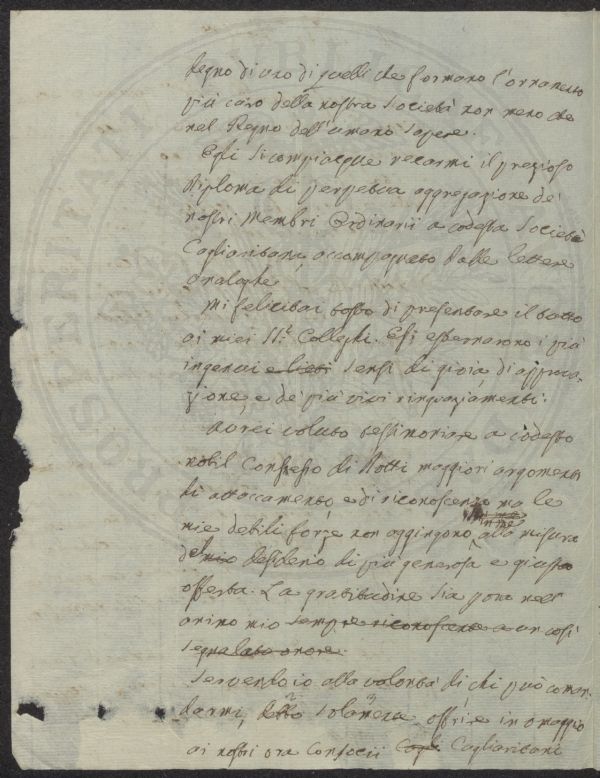 degno di uno di quelli che formano l'ornamento
più caro della nostra Società non meno che
nel Regno dell'umano sapere.
Egli si compiacque recarmi il prezioso
Diploma di perpetua aggregazione de'
nostri Membri Ordinarii a codesta Società
Cagliaritana, accompagnato dalle lettere
analoghe
Mi felicitai tosto di presentare il tutto
ai miei SS.i Colleghi. Essi esternarono i più
ingenui e lieti sensi di gioia, di approva-
zione, e de' più vivi ringraziamenti.
Avrei voluto testimoniare a codesto
nobil Consesso di Dotti maggiori argomenti
di attaccamento, e di riconoscenza ma le
mie debili forze non aggiungono alla misura
del mio desiderio di più generosa e giusta
offerta. La gratitudine sia pura nell'
animo mio sempre riconoscente a un così
segnalato onore.
Servendo io alla volontà di chi può coman-
darmi, debbo solamente offrire in omaggio
ai nostri ora Consocii Cagli Cagliaritani
VRBI
PROSPERITATI